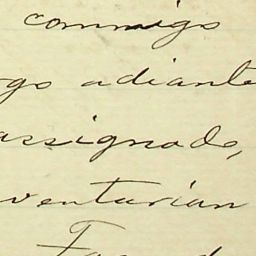 commigo
go adiante
assignado,
venturian